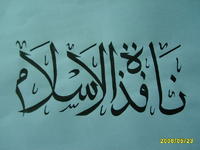 نافذة الاسلام
2008/09/23